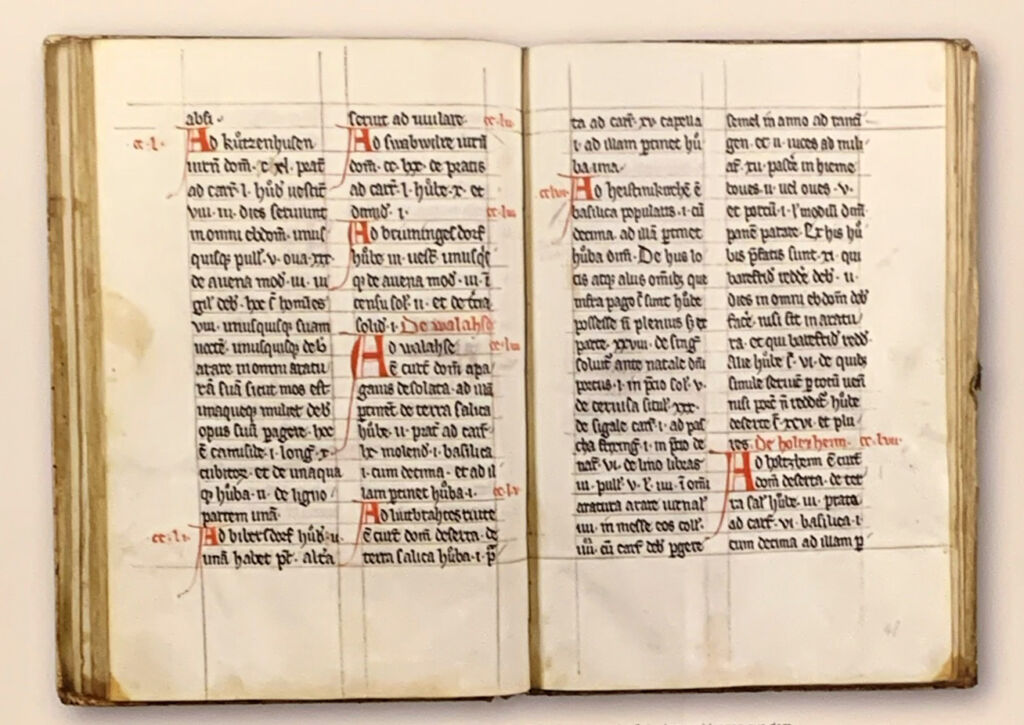 absi·
·cc·l· Ad kůtzenhusen
iurn̄ dom̄· c·xl· prat̄
ad carr̄·l· hůb̄ uestit̄
viii· iii· dies seruiunt
in omni ebdom̄· unus
quisq; pull̄· v· oua·xv·
de auena mod̄· iii· iii
sril̄ deb̄· hec s̄ homīes
viii· unusquisq; suam
uecte unusquisq; deb̄
arare in omni aratu
ra suā sicut mos est
unaqueq; mulier deb̄
opus suū pagere· hec
ē camisile·i·lonḡ·x·
cubitor̄· et de unaqua
q; hůba·ii· de ligno
partem unā·
cc·li· Ad bibersdorf hůb̄·ii·
unā habet pr̄· alt̄a
seruit ad uuilare· cc·lii·
Ad suabwilre iurn̄
dom̄· cc·lxx· de pratis
ad carr̄·l· hůbe·x· et
dimid̄·i· cc·liii·
Ad bruningesdorf
hůbe iii· uest̄· unusq̄
q; de auena mod̄· iii· ī
censu sol̄·ii· et de t̄ra
solid̄·i· De walahse
Ad walahse cc·liiii·
ē curt̄ dom̄ apa
ganis desolata· ad illā
ptinet de terra salica
hůbe·ii· prat̄ ad carr̄·
lx· molend̄·i· basilica
·i· cum decima· et ad il
lam ptinet hůba·i· cc·lv·
Ad luitbrahtes riute
ē curt̄ dom̄ deserta· de
terra salica hůba·i· p̄
ta ad carr̄·xv· capella
·i· ad illam ptinet hů
ba una·
cc·lvi· Ad heistinkirche ē
basilica popularis·i· cū
decima· ad illā ptinet
hůba dim̄· De hus lo
cis atq; aliis omīb; que
infra pago s̄ sunt hůbe
possesse n̄ plenius s; ex
parte· xxviii· de sinḡ
soluit̄ ante natale dn̄i
porcus·i· in p̄cio sol̄·v·
de ceruisa sitil̄·xxx·
de sigale carr̄·i· ad pas
cha frisinḡ·i· in p̄cio de
nar̄·vi· de lino libras
iii· pull̄·v· l̄· iiii· ī omī
aratura arare iurnal̄
iiii· in messe eos coll̄·
iiii· cū carr̄ deb̄ pgere
semel in anno ad tantū
gen· et ii· uices ad mili
ar̄· xii· pascē in hieme
boues·ii· uel oues·v·
et porcū·i· l̄ modiū dim̄·
panē parare· Ex his hů
bis p̄fatis sunt·xi· qui
barefrid̄ reddē deb̄·ii·
dies in omni ebdom̄ deb̄
facē· nisi sit in aratu
ra· et qui barefrid̄ redd̄·
Alie hůbe s̄·vi· de quib;
simile seruic̄ p totū ueñ
nisi porc̄ n̄ reddet̄ hůbe
deserte s̄·xxvi· et plu
res· De holtzheim· cc·lvii·
Ad holtzheim ē curt̄
dom̄ deserta· de ter
ra sal̄ hůbe·iii· prata
ad carr̄·vi· basilica·i·
cum decima ad illam p̄
48